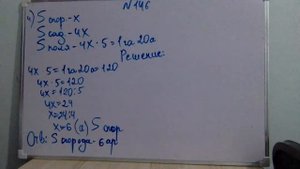 №146
а) S огор-х
S сад-4х
S поля-4х·5=1га20а
Решение:
4х·5=1га20а=120
4х·5=120
4х=120:5
4х=24
х=24:4
х=6(а) S огор
Отв: S огорода-6ар